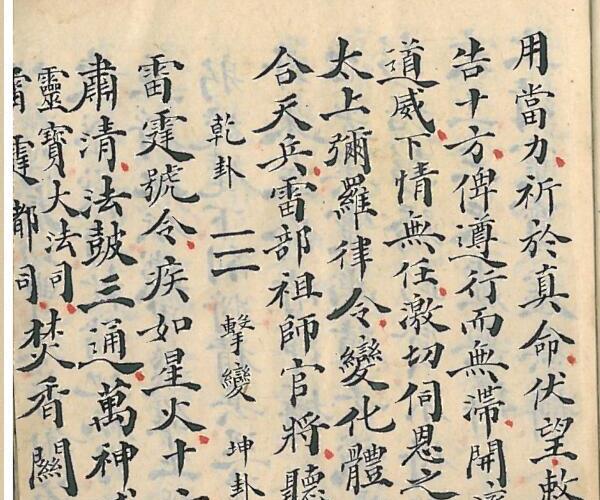 用當力祈於真命伏望敕
告十方俾遵行而無滯開
道威下情無任激切伺恩之
太上彌羅律令變化體
合天兵雷部祖師官將聽
乾卦 三 擊變 坤卦
雷霆號令疾如星火十方
肅清法鼓三通萬神咸
靈寶大法司焚香關
雷霆都司